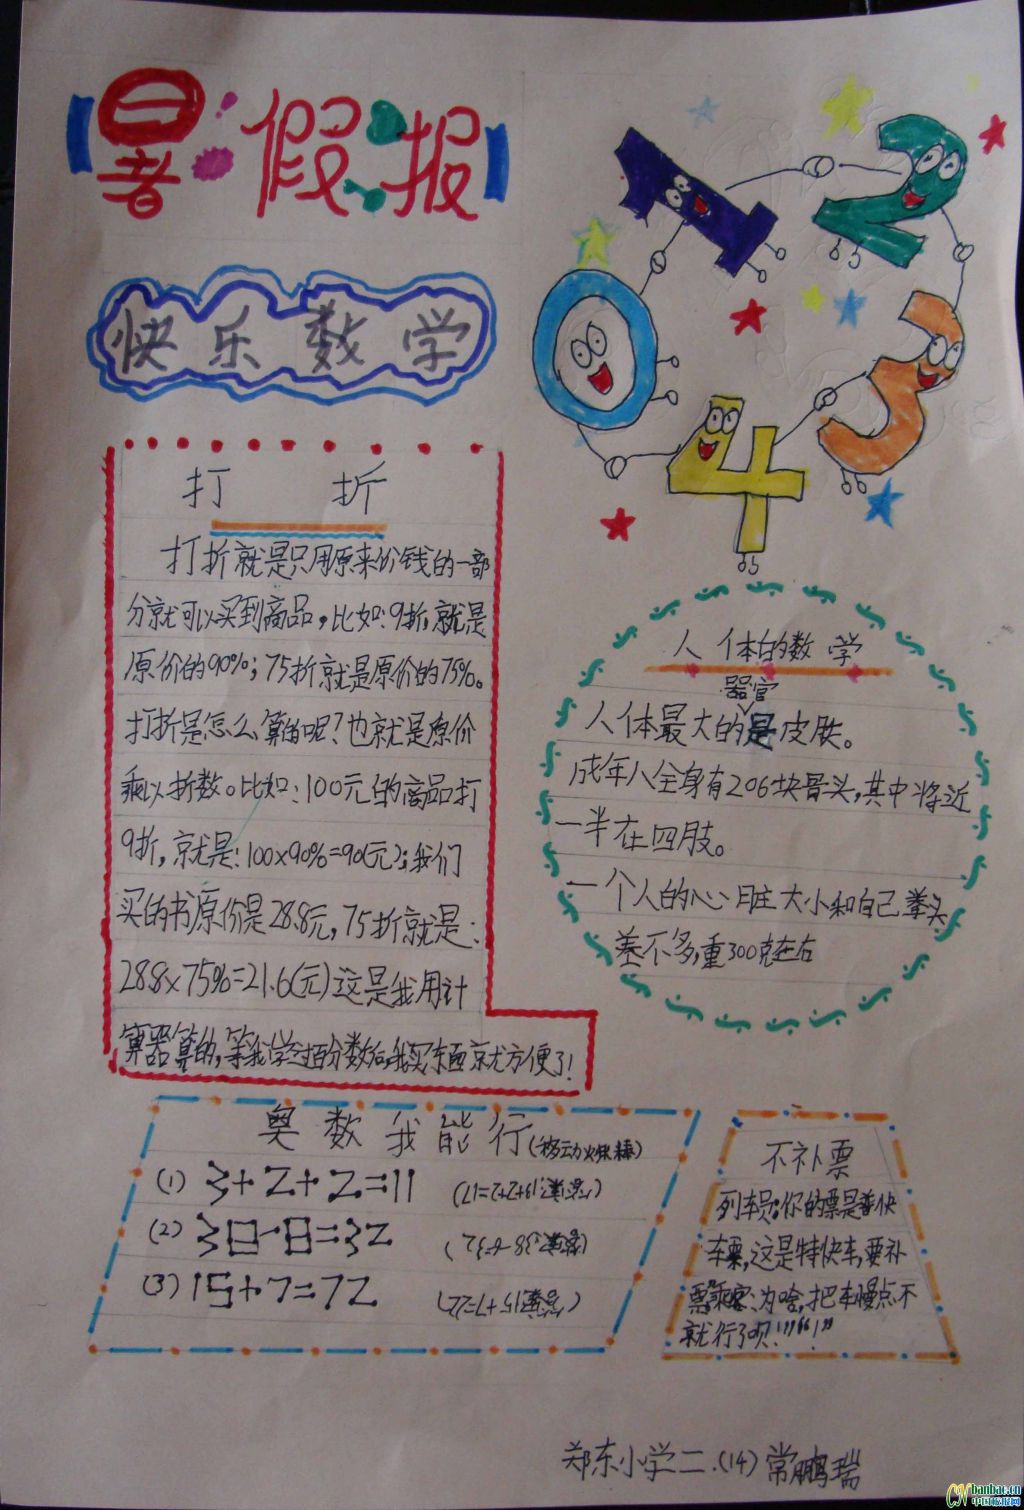 暑假报
快乐数学
打折
打折就是只用原来价钱的一部
分就可以买到商品,比如:9折,就是
原价的90%;75折就是原价的75%。
打折是怎么算的呢?也就是原价
乘以折数。比如:100元的商品打
9折,就是:100×90%=90(元);我们
买的书原价是28.8元,75折就是:
28.8×75%=21.6(元)这是我用计
算器算的,等我学过百分数后,我买东西就方便了!
人体的数学
器官
人体最大的是皮肤。
成年人全身有206块骨头,其中将近
一半在四肢。
一个人的心脏大小和自己拳头
差不多,重300克左右
奥数我能行(移动火柴棒)
(1) 3+2+2=11 (答案:19+2+2=17)
(2) 30-8=32 (答案:38-6=32)
(3) 15+7=72 (答案:15+7=22)
不补票
列车员:你的票是普快
车票,这是特快车,要补
票乘客:为啥,把车慢点不
就行了呗!"“!”
郑东小学二.(14)常鹏瑞
CN banbao.cn
中国板报网